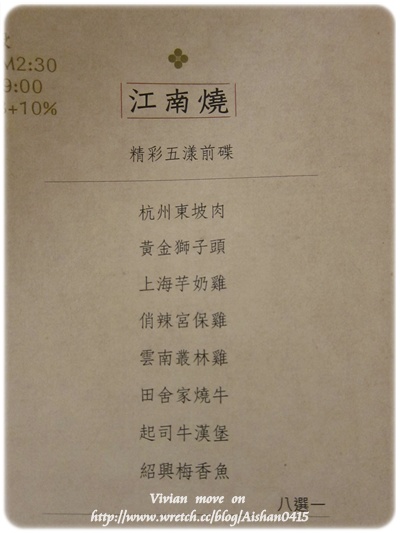 M2:30
9:00
+10%
江南燒
精彩五漾前碟
杭州東坡肉
黃金獅子頭
上海芋奶雞
俏辣宮保雞
雲南叢林雞
田舍家燒牛
起司牛漢堡
紹興梅香魚
八選一
Vivian move on
http://www.wretch.cc/blog/Aishan0415